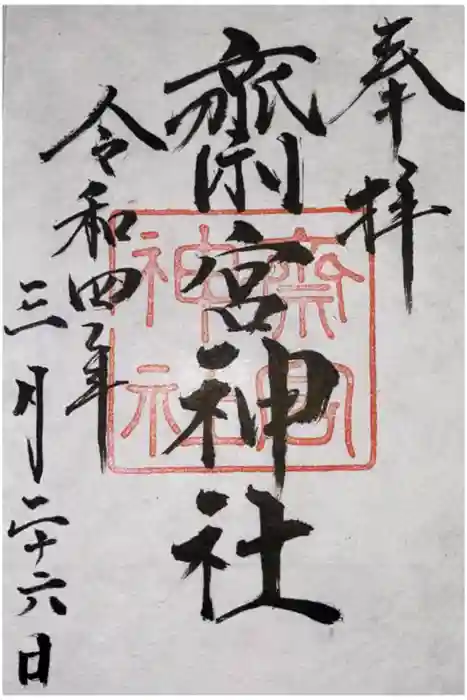 奉拝
齋宮神社
齋宮
神社
令和四年
三月二十六日